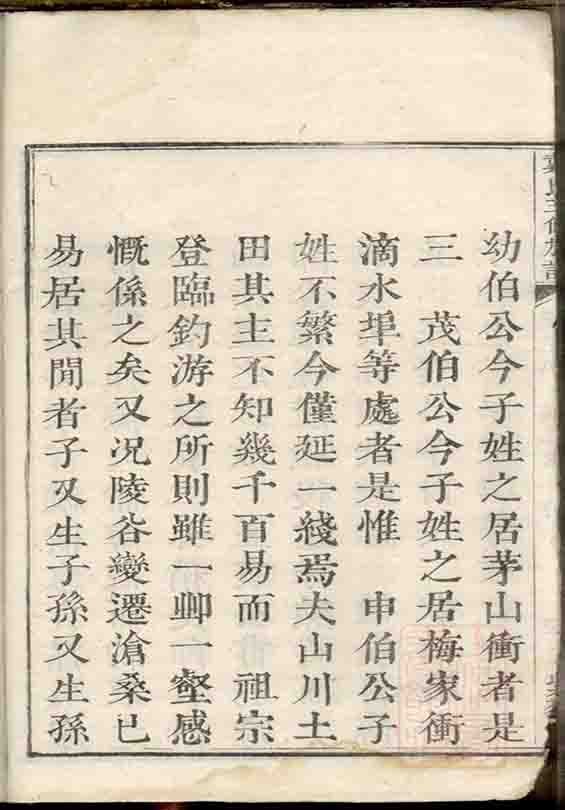 幼伯公今子姓之居茅山衝者是
三　茂伯公今子姓之居梅家衝
滴水埠等處者是惟　申伯公子
姓不繁今僅延一綫焉夫山川土
田其主不知幾千百易而　祖宗
登臨釣游之所則雖一邱一壑感
慨係之矣又况陵谷變遷滄桑已
易居其間者子又生子孫又生孫